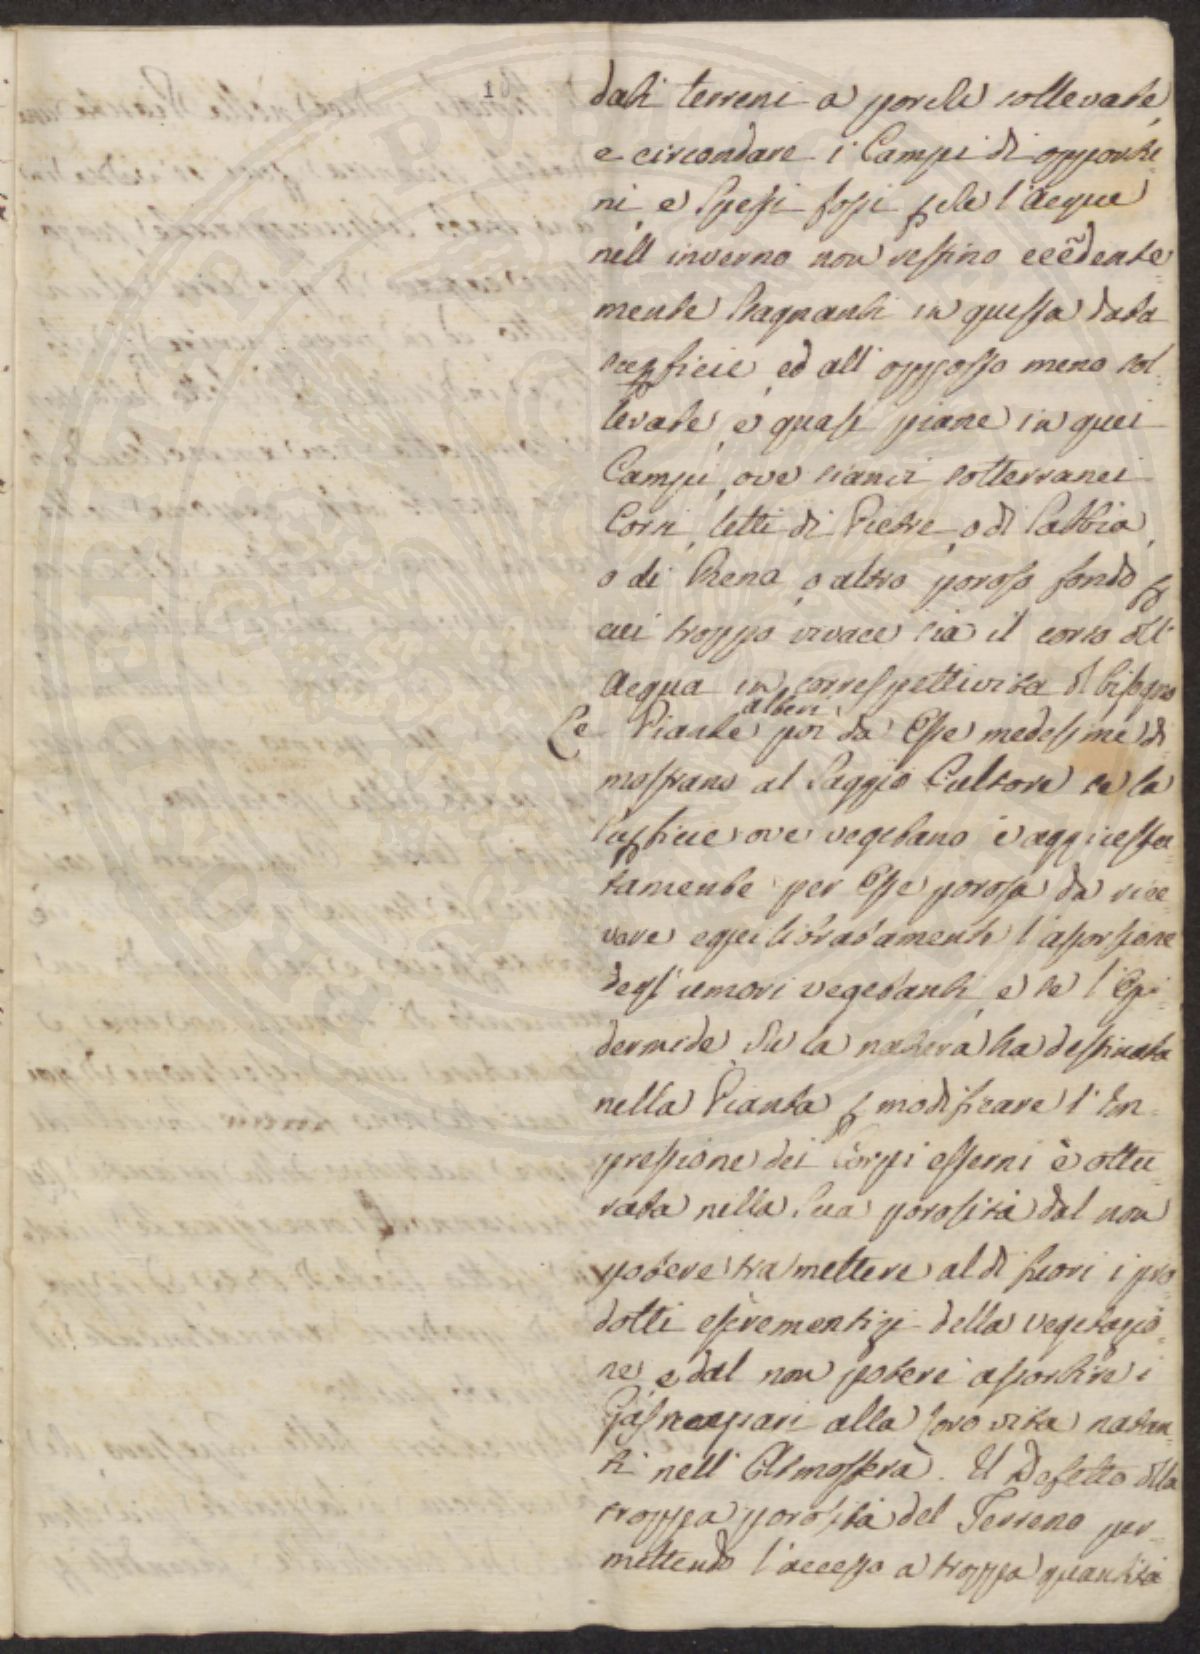 dali terreni a porche sollevate,
e circondare i Campi di opportu
ni, e spessi fossi p che l'Acque
nell inverno non restino eccedente
mente stagnanti in questa data
supficie, ed all' opposto meno sol-
levate, e quasi piane in quei
Campi, ove sianci sotterranei
Corsi, letti di Pietre, o di Sabbia,
o di Rena, o altro poroso fondo p
cui troppo vivace sia il corso dell'
Acqua in correspettività del bisogno
alberi
Le Piante poi da Esse medesime di-
mostrano al Saggio Cultore se la
supficie ove vegetano è aggiusta-
tamente per Esse porosa da rice-
vere equilibratamente l'assorzione
degl'umori vegetanti, e se l'Epi-
dermide che la natura ha destinata
nella Pianta p modificare l'Im-
pressione dei Corpi esterni è ottu-
rata nella sua porosità dal non
potere tramettere al di fuori i pro-
dotti escrementizj della vegetazio-
ne, e dal non potere assorbire i
Gas necessari alla loro vita natan-
ti nell' Atmosfera. Il Difetto della
troppa porosità del Terreno per-
mettendo l'accesso a troppa quantità